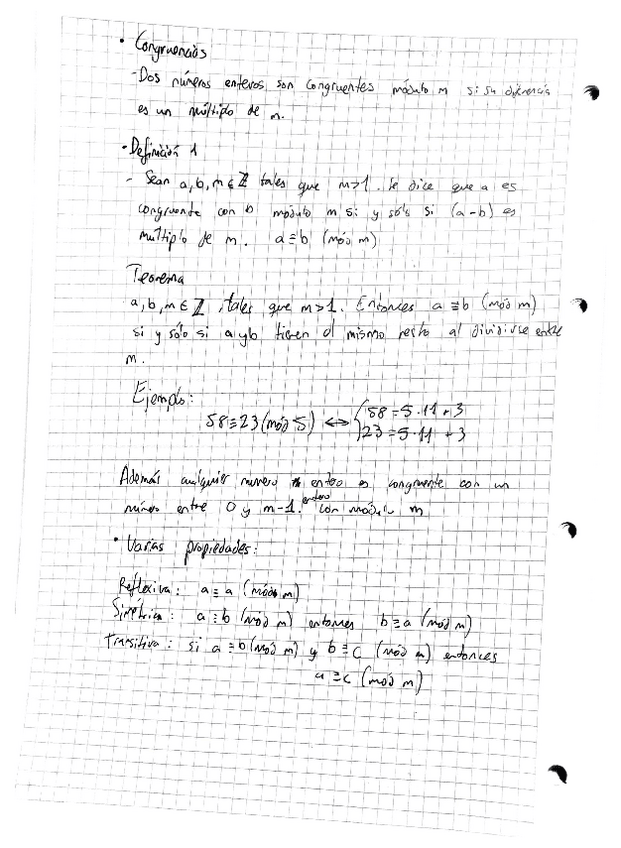 • Congruencias
- Dos números enteros son congruentes módulo m si su diferencia
es un múltiplo de m.
• Definición 1
- Sean a, b, m ∈ ℤ tales que m>1. Se dice que a es
congruente con b módulo m si y sólo si (a-b) es
multiplo de m. a≡b (mód m)
Teorema
a, b, m ∈ ℤ, tales que m>1. Entonces a≡b (mód m)
si y sólo si a y b tienen el mismo resto al dividirse entre
m.
Ejemplo:
58≡23 (mód 5) ⟷ { 58=5·11+3
23=5·11+3
Además cualquier numero entero es congruente con un
número entero entre 0 y m-1. con módulo m
• Varias propiedades:
Reflexiva: a≡a (mód m)
Simétrica: a≡b (mód m) entonces b≡a (mód m)
Transitiva: si a≡b (mód m) y b≡c (mód m) entonces
a≡c (mód m)